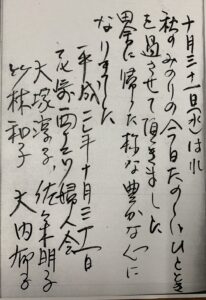 十月三十一日(水)は
秋のみのりの今日たのしいひととき
を過させて頂きました
田舎に帰った様な豊かな心に
なりました
平成 年十月三十一日
婦人会
大塚淳子 佐々木朋子
小林和子 大内郁子